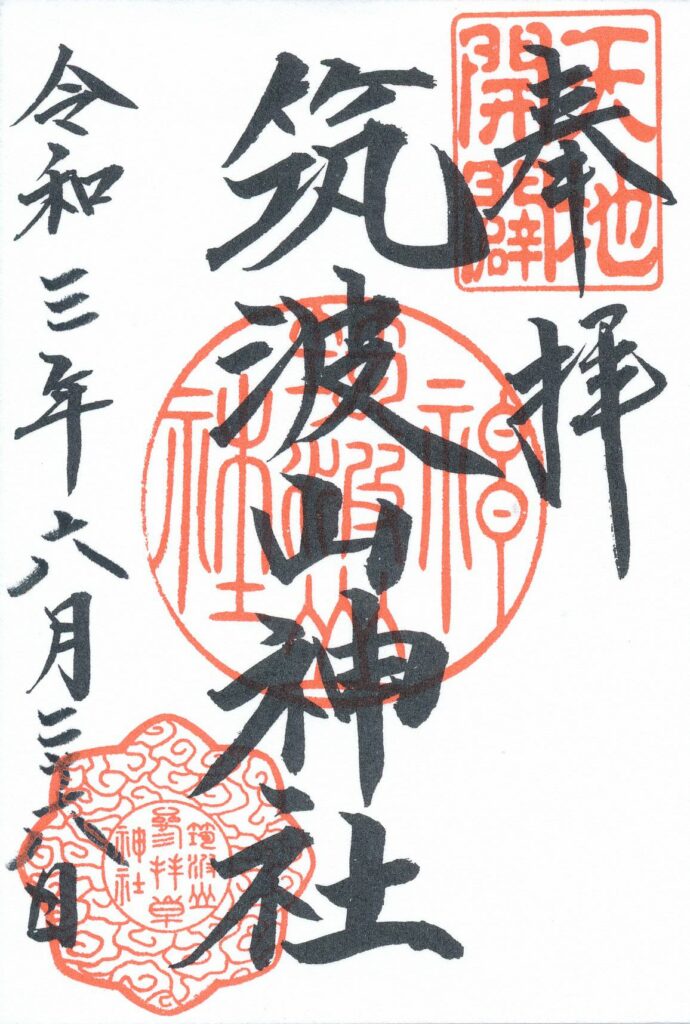 奉拝
筑波山神社
令和三年六月二十日
天地
開闢
筑波山
神社
筑波山
神社
參拝章